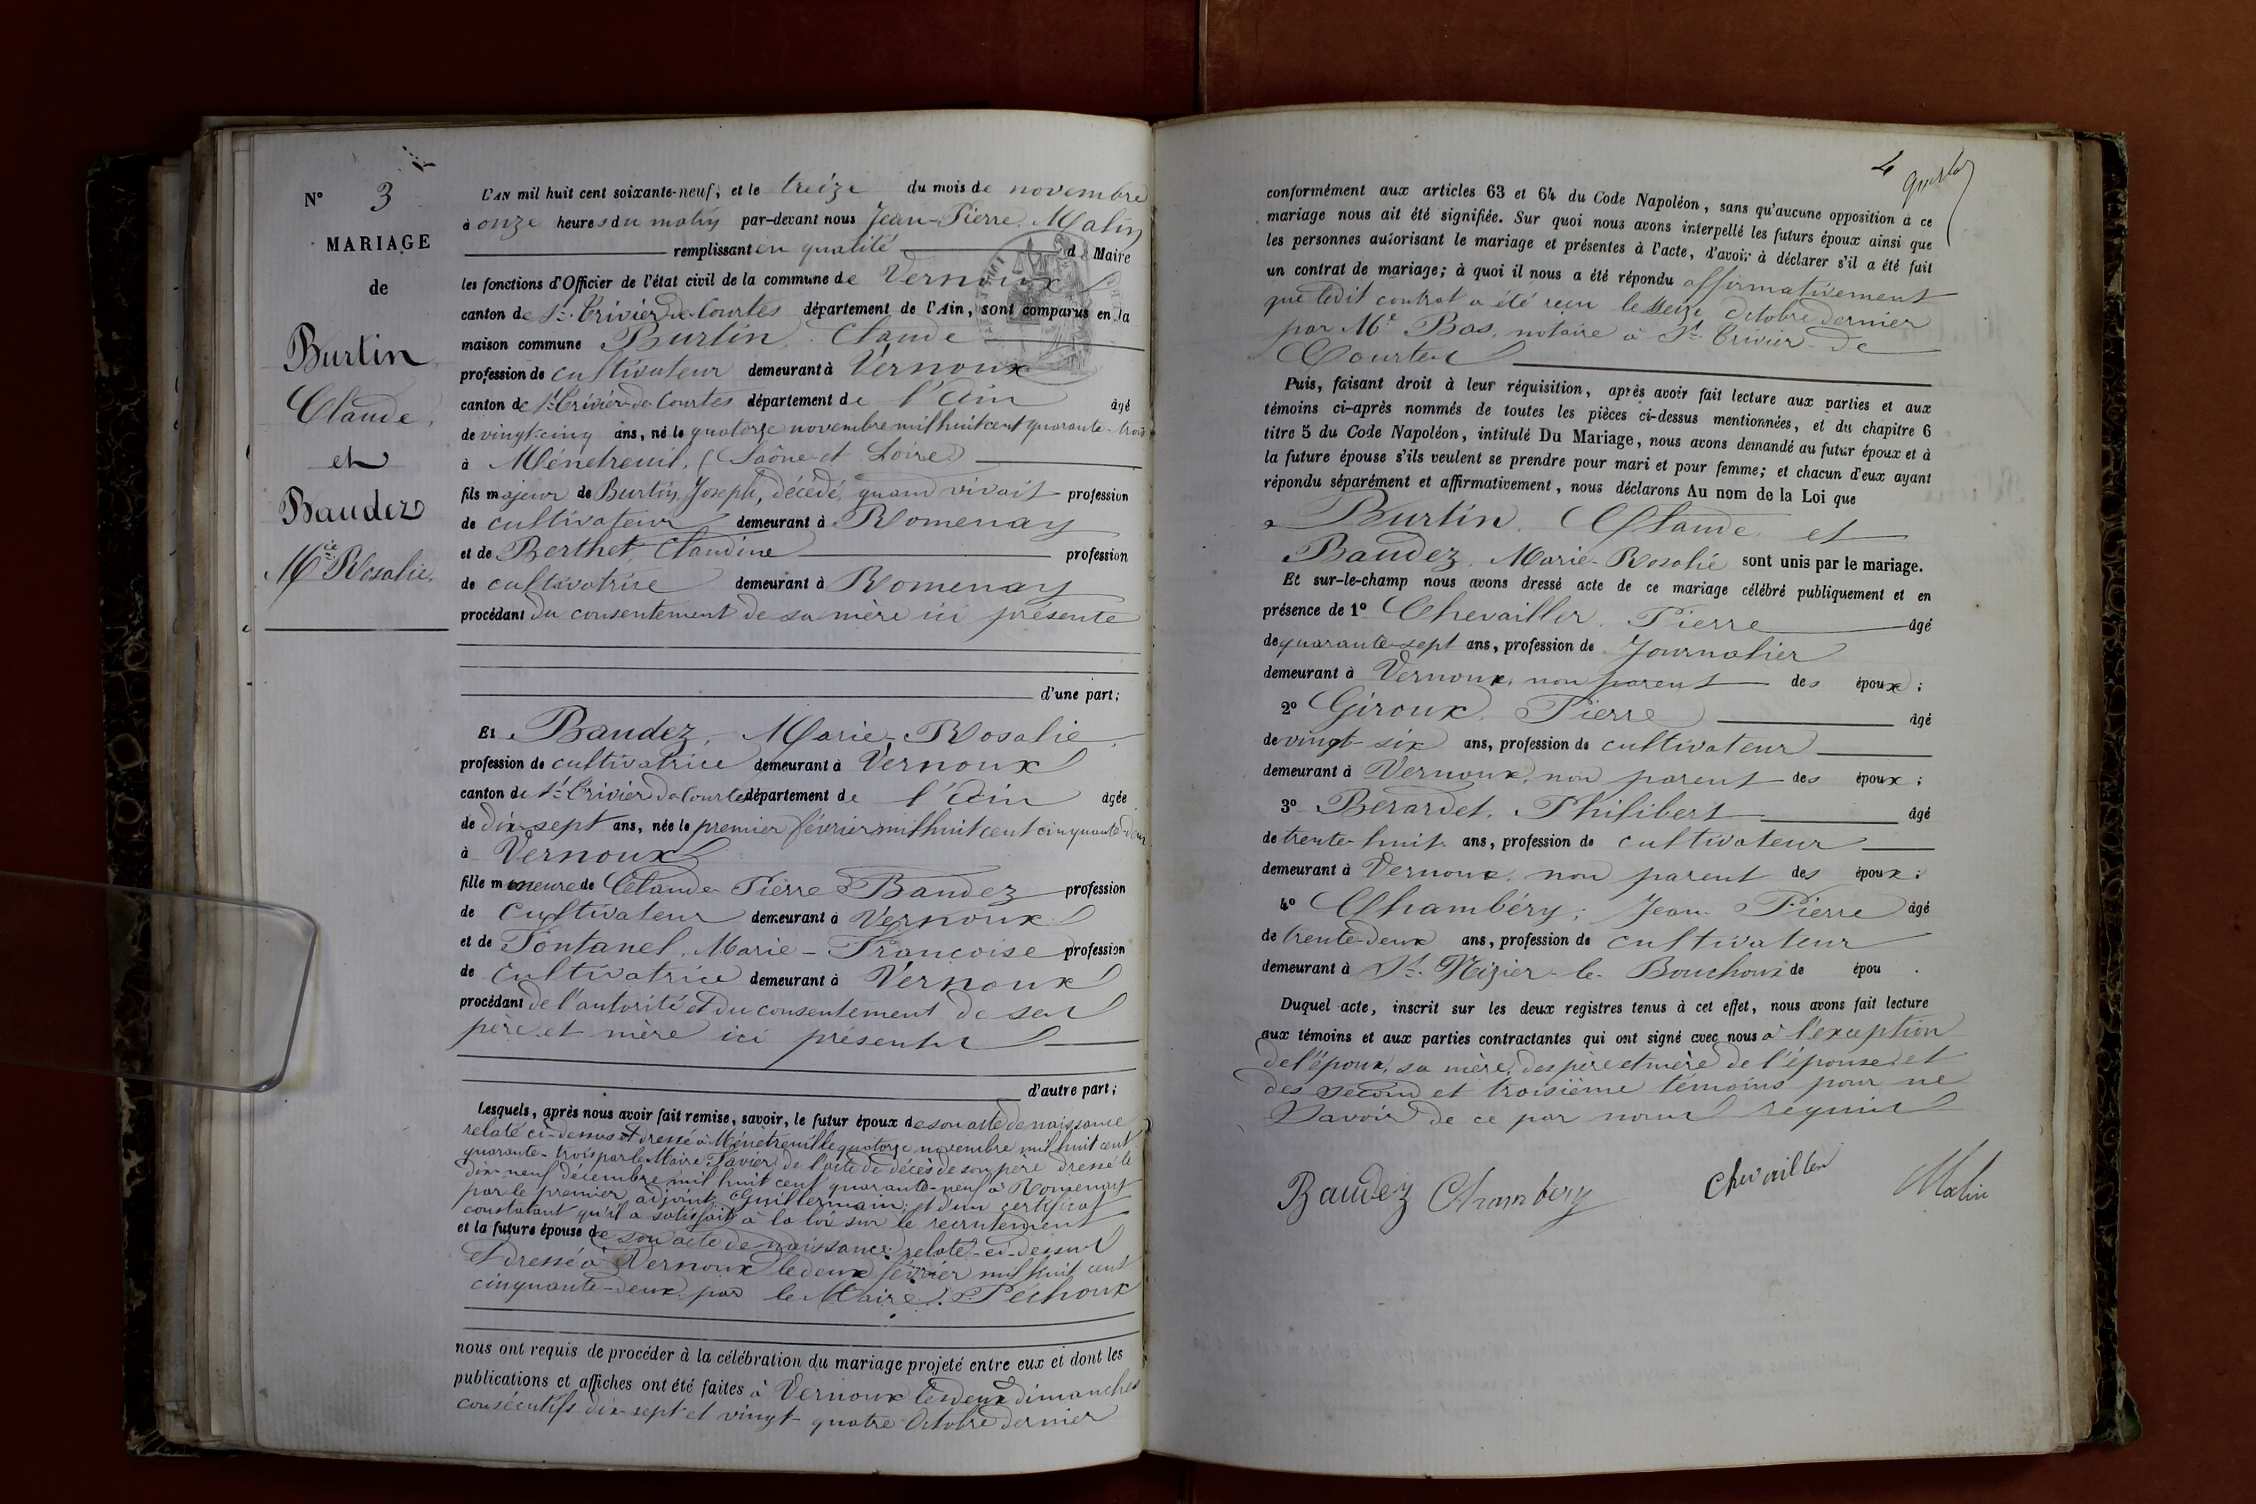 N° 3
MARIAGE
de
Burtin
Claude,
et
Baudez
Mie Rosalie.
L'AN mil huit cent soixante-neuf, et le treize du mois de novembre
à onze heures du matin par-devant nous Jean-Pierre Malin
remplissant en qualité de Maire
les fonctions d'Officier de l'état civil de la commune de Vernoux
canton de St Trivier-de-Courtes département de l'Ain, sont comparus en la
maison commune Burtin, Claude
profession de cultivateur demeurant à Vernoux
canton de St Trivier-de-Courtes département de l'Ain âgé
de vingt-cinq ans, né le quatorze novembre mil huit cent quarante-trois
à Ménetreuil, (Saône-et-Loire)
fils majeur de Burtin Joseph, décédé, quand vivait profession
de cultivateur demeurant à Romenay
et de Berthet Claudine profession
de cultivatrice demeurant à Romenay
procédant du consentement de sa mère ici présente
d'une part;
Et Baudez, Marie-Rosalie,
profession de cultivatrice demeurant à Vernoux
canton de St Trivier de Courtes département de l'Ain âgée
de dix-sept ans, née le premier février mil huit cent cinquante-deux
à Vernoux
fille mineure de Claude Pierre Baudez profession
de cultivateur demeurant à Vernoux
et de Fontanel, Marie-Françoise profession
de cultivatrice demeurant à Vernoux
procédant de l'autorité et du consentement de ses
père et mère ici présents
d'autre part;
Lesquels, après nous avoir fait remise, savoir, le futur époux de son acte de naissance
relaté ci-dessus et dressé à Ménetreuil le quatorze novembre mil huit cent
quarante-trois par le Maire Tavier, de l'acte de décès de son père dressé le
dix-neuf décembre mil huit cent quarante-neuf à Romenay
par le premier adjoint Guillermain; et d'un certificat
constatant qu'il a satisfait à la loi sur le recrutement
et la future épouse de son acte de naissance relaté ci-dessus
et dressé à Vernoux le deux février mil huit cent
cinquante-deux, par le Maire: Péchoux
nous ont requis de procéder à la célébration du mariage projeté entre eux et dont les
publications et affiches ont été faites à Vernoux les deux dimanches
consécutifs dix-sept et vingt-quatre Octobre dernier
4
conformément aux articles 63 et 64 du Code Napoléon, sans qu'aucune opposition à ce
mariage nous ait été signifiée. Sur quoi nous avons interpellé les futurs époux ainsi que
les personnes autorisant le mariage et présentes à l'acte, d'avoir à déclarer s'il a été fait
un contrat de mariage; à quoi il nous a été répondu affirmativement
que ledit contrat a été reçu le seize Octobre dernier
par Me Bas, notaire à St Trivier-de
Courtes
Puis, faisant droit à leur réquisition, après avoir fait lecture aux parties et aux
témoins ci-après nommés de toutes les pièces ci-dessus mentionnées, et du chapitre 6
titre 5 du Code Napoléon, intitulé Du Mariage, nous avons demandé au futur époux et à
la future épouse s'ils veulent se prendre pour mari et pour femme; et chacun d'eux ayant
répondu séparément et affirmativement, nous déclarons Au nom de la Loi que
Burtin, Claude et
Baudez, Marie-Rosalie sont unis par le mariage.
Et sur-le-champ nous avons dressé acte de ce mariage célébré publiquement et en
présence de 1° Chevailler, Pierre âgé
de quarante-sept ans, profession de Journalier
demeurant à Vernoux, non parent des époux;
2° Giroux, Pierre âgé
de vingt-six ans, profession de cultivateur
demeurant à Vernoux, non parent des époux;
3° Bérardet, Philibert âgé
de trente-huit ans, profession de cultivateur
demeurant à Vernoux, non parent des époux;
4° Chambéry, Jean Pierre âgé
de trente-deux ans, profession de cultivateur
demeurant à St Nizier-le-Bouchoux de épou .
Duquel acte, inscrit sur les deux registres tenus à cet effet, nous avons fait lecture
aux témoins et aux parties contractantes qui ont signé avec nous à l'exception
de l'époux, sa mère, des père et mère de l'épouse et
des second et troisième témoins pour ne
savoir de ce par nous requis
Baudez Chambery Chevailler Malin